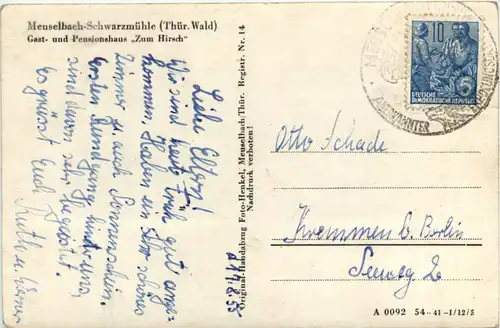 Meuselbach-Schwarzmühle (Thür. Wald)
Gast- und Pensionshaus „Zum Hirsch"
Liebe Eltern!
Wir sind heute früh gut ange-
kommen, haben ein sehr schönes
Zimmer u. auch Sonnenschein.
Ersten Rundgang hinter uns
sind davon sehr begeistert.
Es grüsst Euch Ruth u. Werner
d. 14.8.55
Original-Handabzug Foto-Henkel, Meuselbach/Thür. Registr. Nr. 14
Nachdruck verboten!
10
DEUTSCHE
DEMOKRATISCHE REPUBLIK
Otto Schade
Kremmen b. Berlin
Seeweg 2
A 0092 54-41-I/12/5